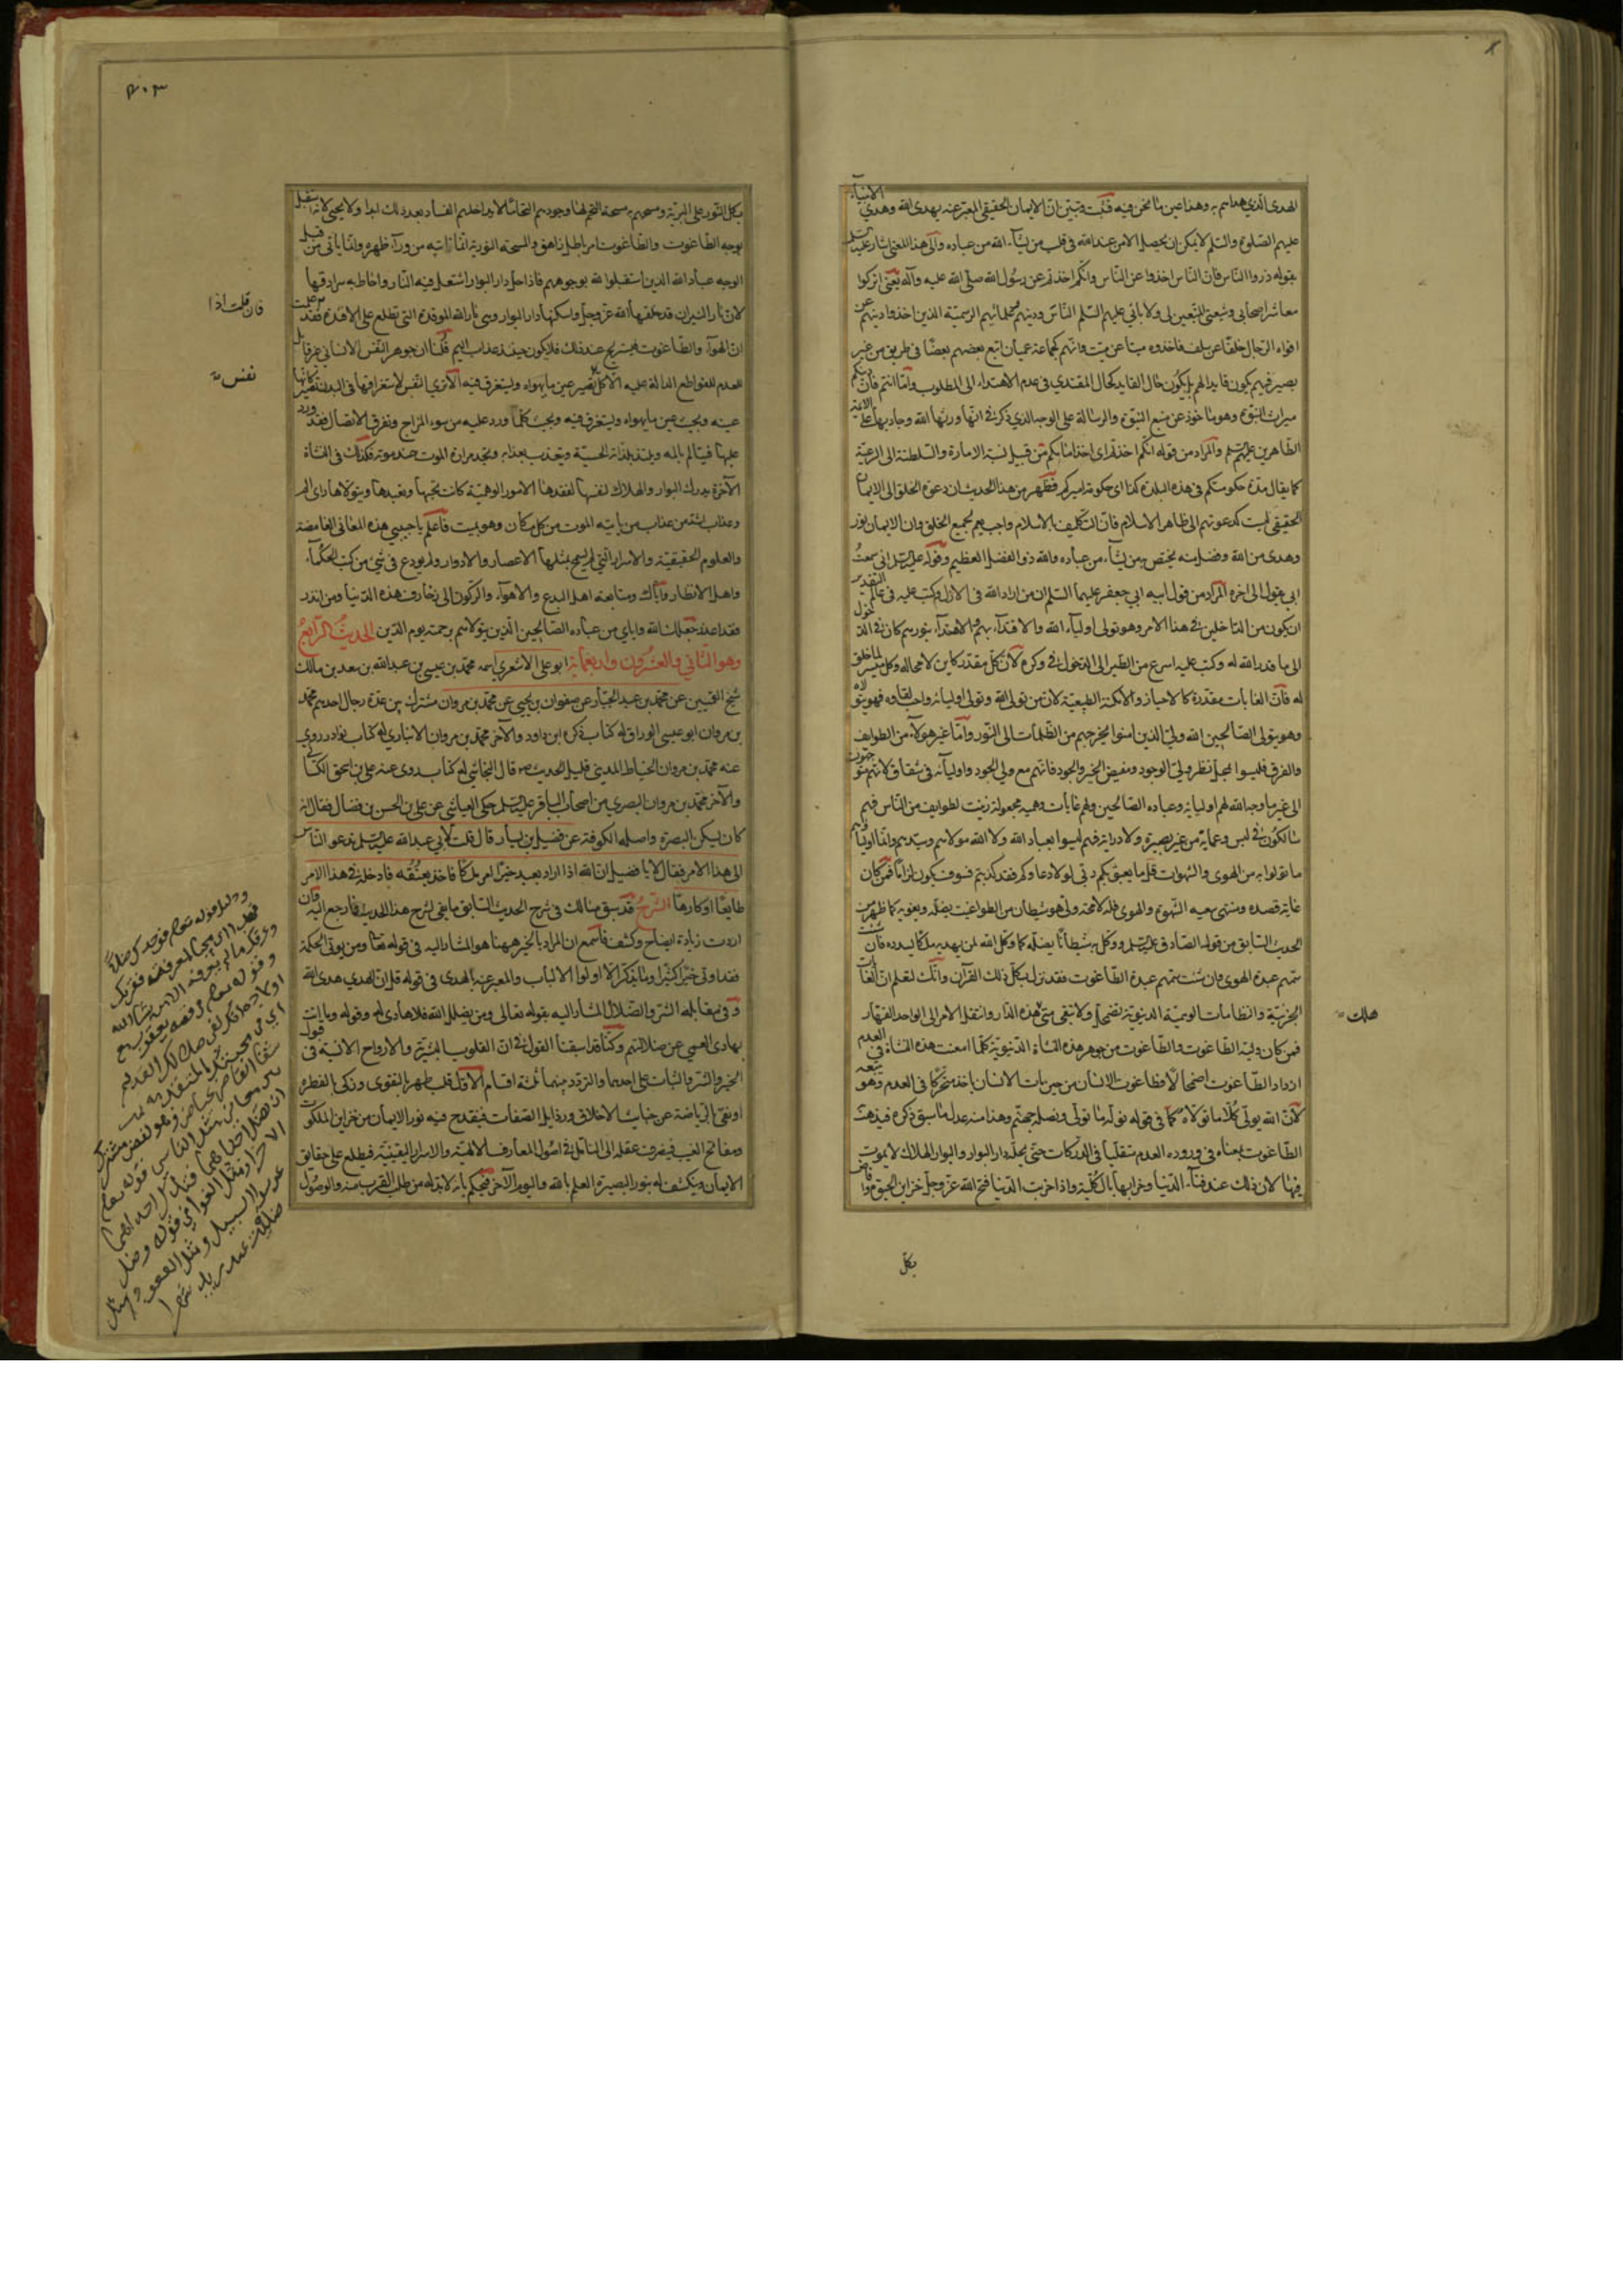 الهدى الذي هداهم به وهذا عين ما نحن فيه فثبت وتبين ان الايمان الحقيقي المعبر عنه بهدى الله وهدى الانبياء
عليهم الصلوة والسلم لا يمكن ان يحصل الا من عند الله في قلب من يشآء الله من عباده والى هذا المعنى اشار عليه السلم
بقوله ذروا الناس فان الناس اخذوا عن الناس وانكم اخذتم عن رسول الله صلى الله عليه وآله يعنى اتركوا
معاشر اصحابي وشيعتى المتبعين لى ولابائي عليهم السلم الناس ودينهم علمائهم الرسمية الذين اخذوا دينهم عن
افواه الرجال خلفا عن سلف فاخذوه ميتا عن ميت وانهم كجماعة عميان اتبع بعضهم بعضا في طريق من غير
بصير فيهم يكون قايدا لهم بل يكون حال القايد كحال المقتدي في عدم الاهتداء الى المطلوب واما انتم فان دينكم
ميراث النبوة وهو ماخوذ عن منبع النبوة والرسالة على الوجه الذي ذكر في انها ورثها الله وجاد بها على الائمة
الطاهرين عليهم السلم والمراد من قوله انكم اخذتم اى اخذ امامكم من قبيل نسبة الامارة والسلطنة الى الرعية
كما يقال مدة حكومتكم في هذه البلدة كذا اى حكومة اميركم فظهر من هذا الحديث ان دعوة الخلق الى الايمان
الحقيقي ليست كدعوتهم الى ظاهر الاسلام فان التكليف بالاسلام واجب يعم لجميع الخلق وان الايمان نور
وهدى من الله وفضل منه يختص به من يشآء من عباده والله ذو الفضل العظيم وقوله عليه السلم اني سمعت
ابي يقول الى اخره المراد من قول ابيه ابي جعفر عليهما السلم ان من اراد الله في الازل وكتب عليه في عالم التقدير
ان يكون من الداخلين في هذا الامر وهو تولى اوليآء الله والاقتدآء بهم والاهتدآء بنورهم كان في الدخول
الى ما قدر الله له وكتب عليه اسرع من الطير الى الدخول في وكره لان كل مقدر كاين لا محاله وكل ميسر لما خلق
له فان الغايات مقدرة كالاحياز والامكنة الطبيعية لان من تولى الله وتولى اوليائه واحب لقاوه فهو يتولاه
وهو يتولى الصالحين الله ولي الذين امنوا يخرجهم من الظلمات الى النور واما غير هولآء من الطوايف
والفرق فليسوا بمحل نظر ولي الوجود ومفيض الخير والجود فانهم مع ولي الجود واوليآئه في شقاق لانهم متوجهون
الى غير ما وجه الله لهم اوليائه وعباده الصالحين ولهم غايات وهمية مجعولة زينت لطوايف من الناس فهم
سالكون في لبس وعماية من غير بصيرة ولا دراية فهم ليسوا بعباد الله ولا الله مولاهم وسيدهم وانما اولياؤهم
ما تولوا به من الهوى والشهوات قل ما يعبؤ بكم ربى لولا دعاوكم فقد كذبتم فسوف يكون لزاما فمن كان
غاية قصده ومنتهى سعيه الشهوة والهوى فله لا محة ولى هو شيطان من الطواغيت يضله ويغويه كما ظهر من
الحديث السابق من قوله الصادق عليه السلم ووكل به شيطانا يضله كما وكل الله لمن يهديه ملكا يسدده فان شئت
سمهم عبدة الهوى فان شئت سمهم عبدة الطاغوت فقد نزل بكل ذلك القرآن وانك لتعلم ان الغايات
الجزئية وانظامات الوهمية الدنيوية تضمحل ولا تبقى متى هذه الدار وانتقل الامر الى الواحد القهار
فمن كان وليه الطاغوت والطاغوت من جوهر هذه النشاة الدنيوية كلما امعنت هذه النشاة في العدم
ازداد الطاغوت اضمحلالا فطاغوت الانسان من حين مات الانسان اخذ متحركا في العدم وهو يتبعه
لان الله يولى كلا ما تولاه كما في قوله نوله ما تولى ونصله جهنم وهذا منه عدل ما سبق ذكره فيذهب
الطاغوت بمتبعاه في وروده العدم متقلبا في الدركات حتى يحله دار البوار والبوار الهلاك لا يموت
فيها لان ذلك عند فنآء الدنيا وخرابها بالكلية واذا خربت الدنيا فتح الله عز وجل خزاين الحيوة وافاض
هلك
بكل
بكل النور على البرية ومسحهم به مسحة التحم لها وجودهم التحاما لا يداخلهم الفساد بعد ذلك ابدا ولا يحيى لانه استقبل
بوجه الطاغوت والطاغوت امر باطل زاهق والمسحة النورية انما تاتيه من ورآء ظهره وانما ياتى من قبل
الوجه عباد الله الذين استقبلوا لله بوجوههم فاذا حل دار البوار اشتعل فيه النار واحاط به سرادقها
لان نار النيران قد خلقها الله عز وجل واسكنها دار البوار وهي نار الله الموقدة التي تطلع على الافئدة فقد علمت
ان الهوآء والطاغوت يستريح عند ذلك فلا يكون حينئذ عذاب اليم قلنا ان جوهر النفس الانساني غير قابل
للعدم للقواطع الدالة عليه الا ان كل نفس تصير عين ما يهواه ويستغرق فيه الا ترى النفس لاستغراقها في البدن تصير كانها
عينه ويحب عين ما يهواه ويستغرق فيه ويحب كلما ورد عليه من سوء المزاج وتفرق الاتصال فقد ورد
عليها فيتالم بالمه ويلتذ بلذاته الحسية ويتعذب بعذابه ويجد مرارة الموت عند موته فكذلك في النشاة
الآخرة يدرك البوار والهلاك لنفسها لفقدها الامور الوهمية كانت تحبها وتعبدها ويتولاها واى الم
وعذاب اشد من عذاب من ياتيه الموت من كل مكان وهو بميت فاعلم يا حبيبي هذه المعانى الغامضة
والعلوم الحقيقية والاسرار التي لم يسمح بمثلها الاعصار والادوار ولم يودع في شئ من كتب الحكمآء
واهل الانظار واياك ومتابعة اهل البدع والاهوآء والركون الى زخارف هذه الدنيا ومن انذر
فقد اعذر جعلك الله واياي من عباده الصالحين الذين يتولاهم برحمته يوم الدين الحديث الرابع
وهو الثاني والعشرون واربعمائة ابو على الاشعري اسمه محمد بن عيسى بن عبدالله بن سعد بن مالك
شيخ القميين عن محمد بن عبد الجبار عن صفوان بن يحيى عن محمد بن مروان مشترك بين عدة رجال احدهم محمد
بن مروان ابو عيسى الوراق له كتاب ذكره ابن داود والآخر محمد بن مروان الانباري له كتاب نوادر روى
عنه محمد بن مروان الخياط المديني قليل الحديث صه قال النجاشي له كتاب روى عنه على بن اسحق الكسائى
والآخر محمد بن مروان البصري من اصحاب الباقر عليه السلم حكى العياشى عن على بن الحسن بن فضال فقال انه
كان يسكن البصرة واصله الكوفة عن فضيل بن يسار قال قلت لابي عبدالله عليه السلم ندعو الناس
الى هذا الامر فقال لا يا فضيل ان الله اذا اراد بعبد خيرا امر ملكا فاخذ بعنقه فادخله في هذا الامر
طايعا او كارها الشرح قد سبق منا لك في شرح الحديث السابق ما يفي لشرح هذا الحديث فارجع اليه فان
اردت زيادة ايضاح وكشف فاسمع ان المراد بالخير ههنا هو المشار اليه في قوله تعا ومن يوتى الحكمة
فقد اوتى خيرا كثيرا وما يذكر الا اولوا الالباب والمعبر عنه بالهدى في قوله قل ان الهدى هدى الله
وفى مقابله الشر والضلال المشار اليه بقوله تعالى ومن يضلل الله فلا هادى له وقوله وما انت
بهادى العمى عن ضلالتهم وكنا قد اسبقنا القول في ان القلوب البشرية والارواح الانسية فى قبول
الخير والشر والثبات على احدهما والتردد بينهما ثلثة اقسام الاول قلب طهر بالتقوى وزكى بالفطرة
او نقى بالرياضة عن خبايث الاخلاق ورذايل الصفات فينقدح فيه نور الايمان من خزاين الملكوت
ومفاتح الغيب فيصرف عقله الى التامل في اصول المعارف الالهية والاسرار اليقينية فيطلع على حقايق
الايمان وينكشف له بنور البصيرة العلم بالله واليوم الآخر فيحكم بانه لابد له من طلب القرب منه والوصول
فان قلت اذا
نفس